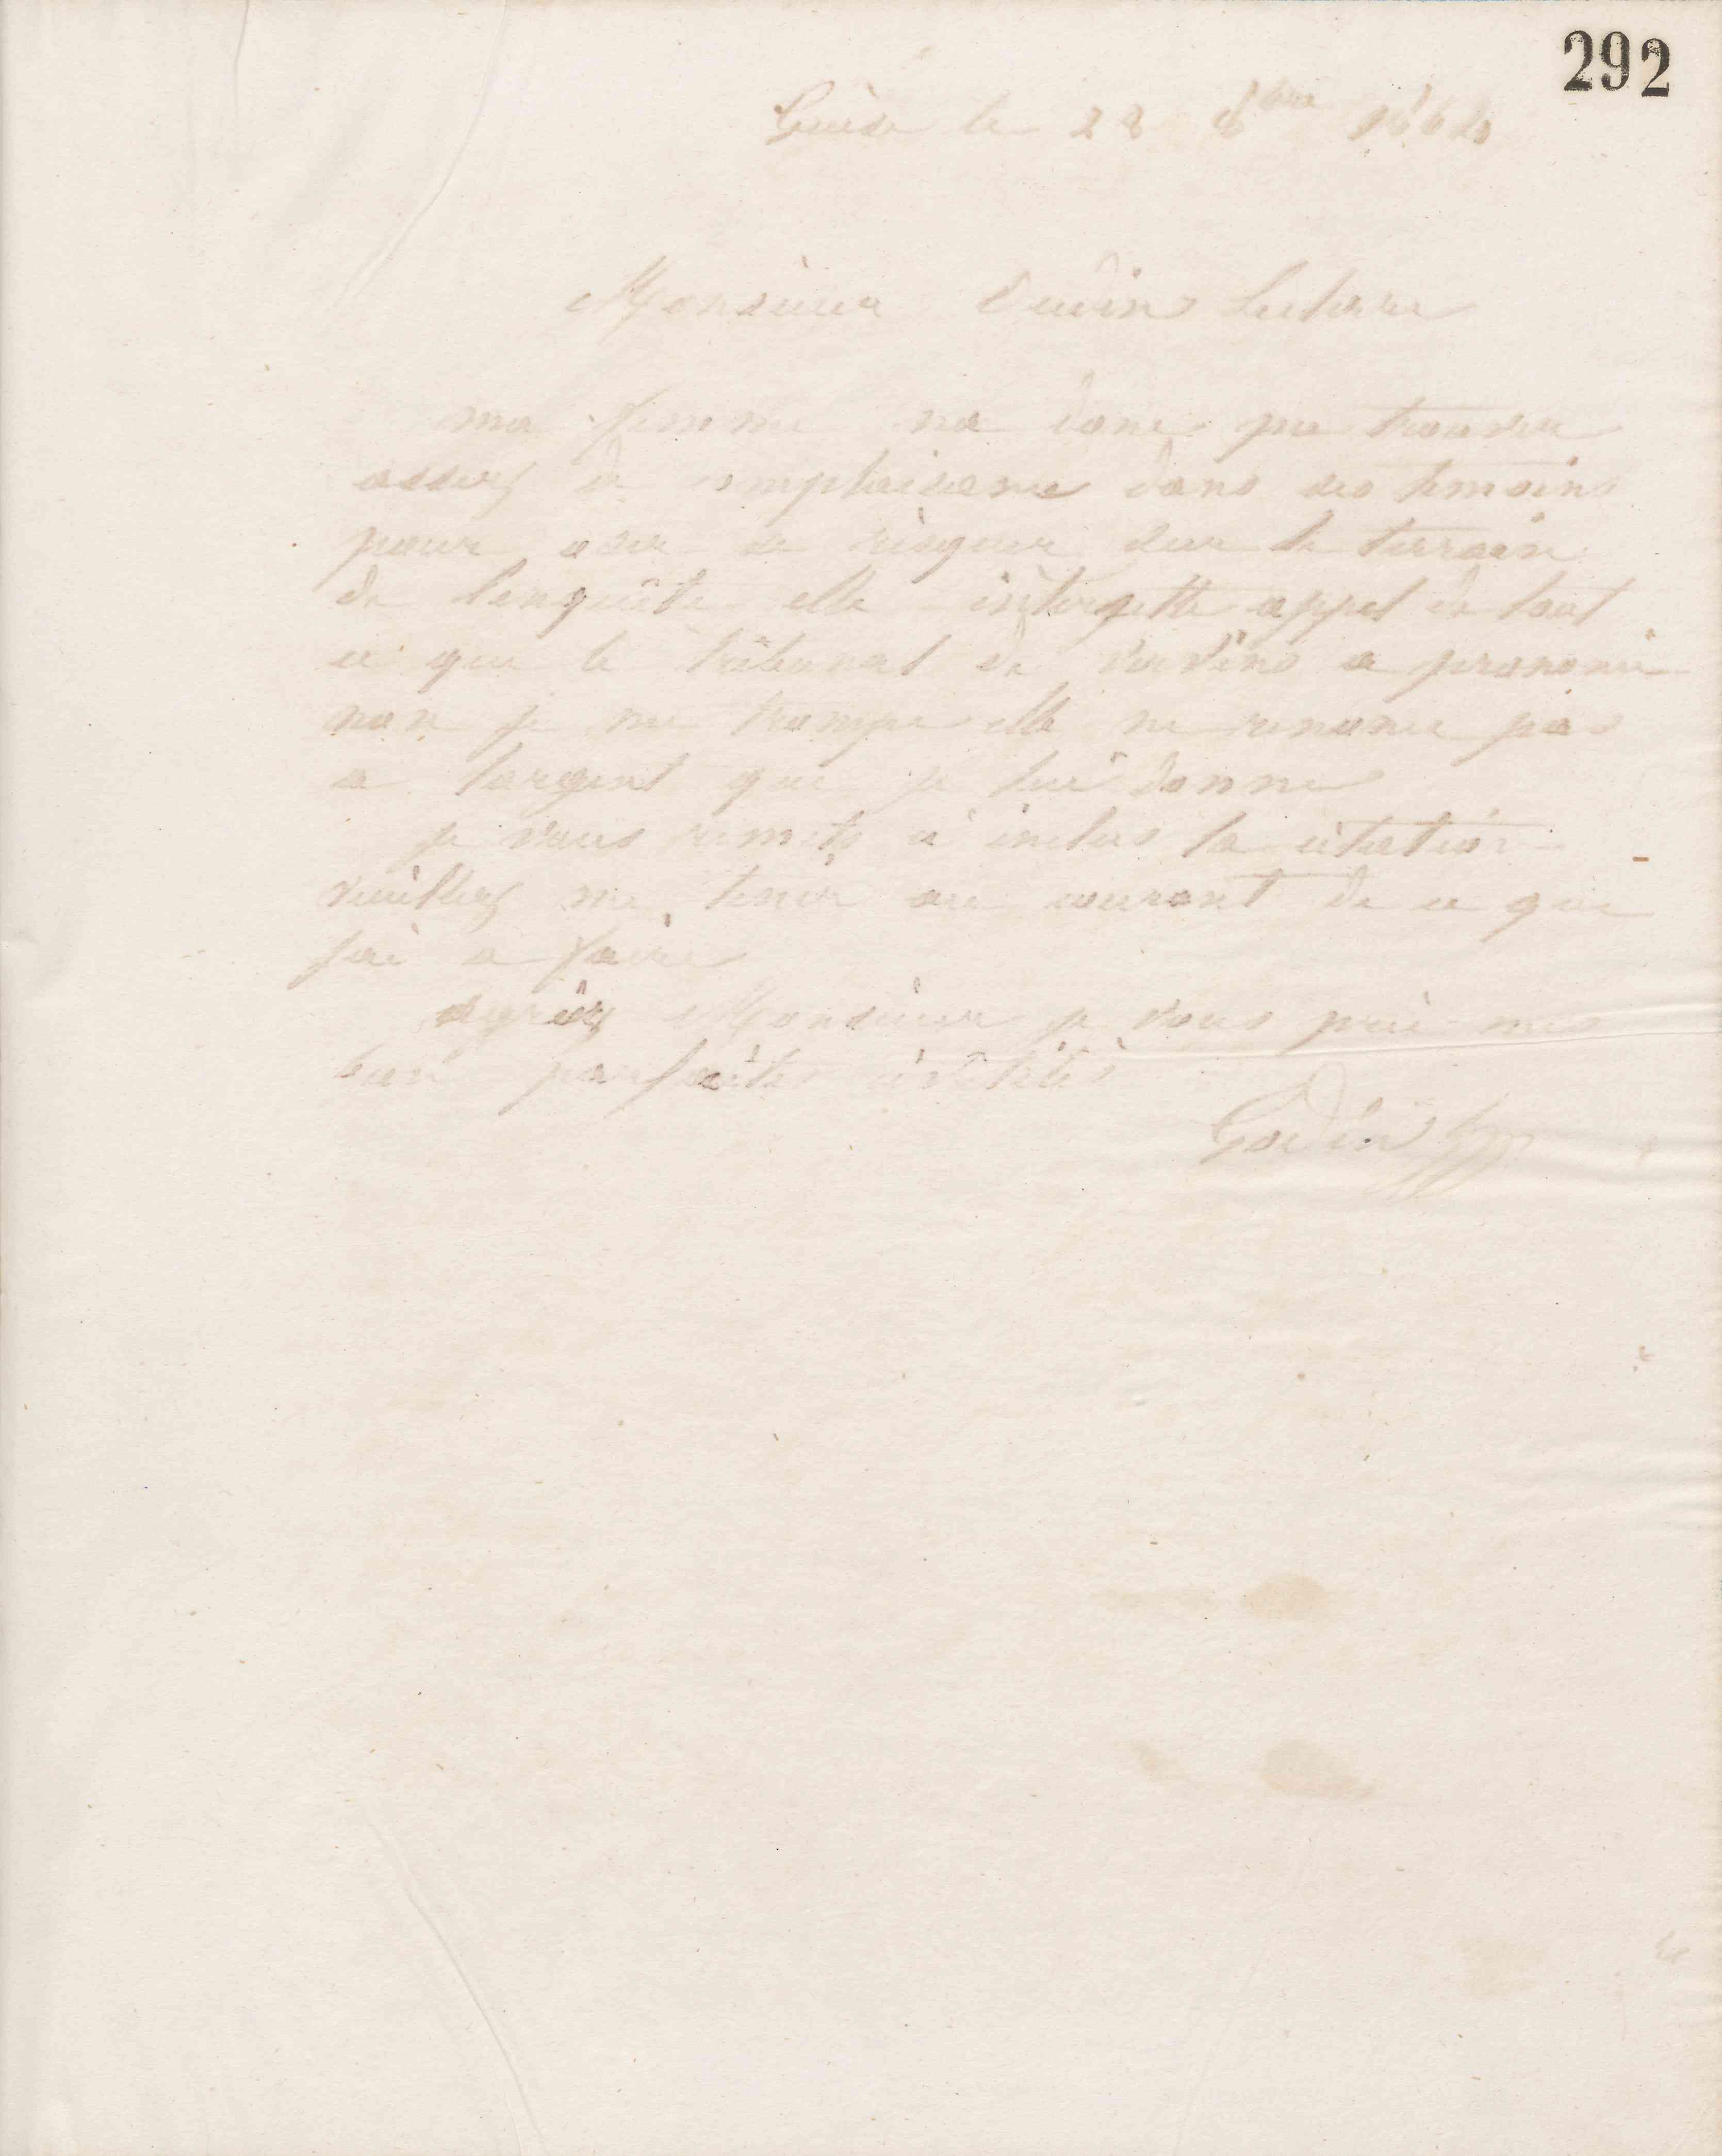 292
Guise le 28 8bre 1864
Monsieur Oudin Leclere
ma femme na donc pu trouver
assez de complaisance dans ses temoins
pour oser se risquer sur le terrain
de l'enquête elle interjette appel de tout
ce que le tribunal de vervins a prononcé
non je me trompe elle ne renonce pas
a largent que je lui donne
je vous remets ci inclus la citation
veuillez me tenir au courant de ce que
jai a faire
agréez Monsieur je vous prie mes
bien parfaites civilités
Godin